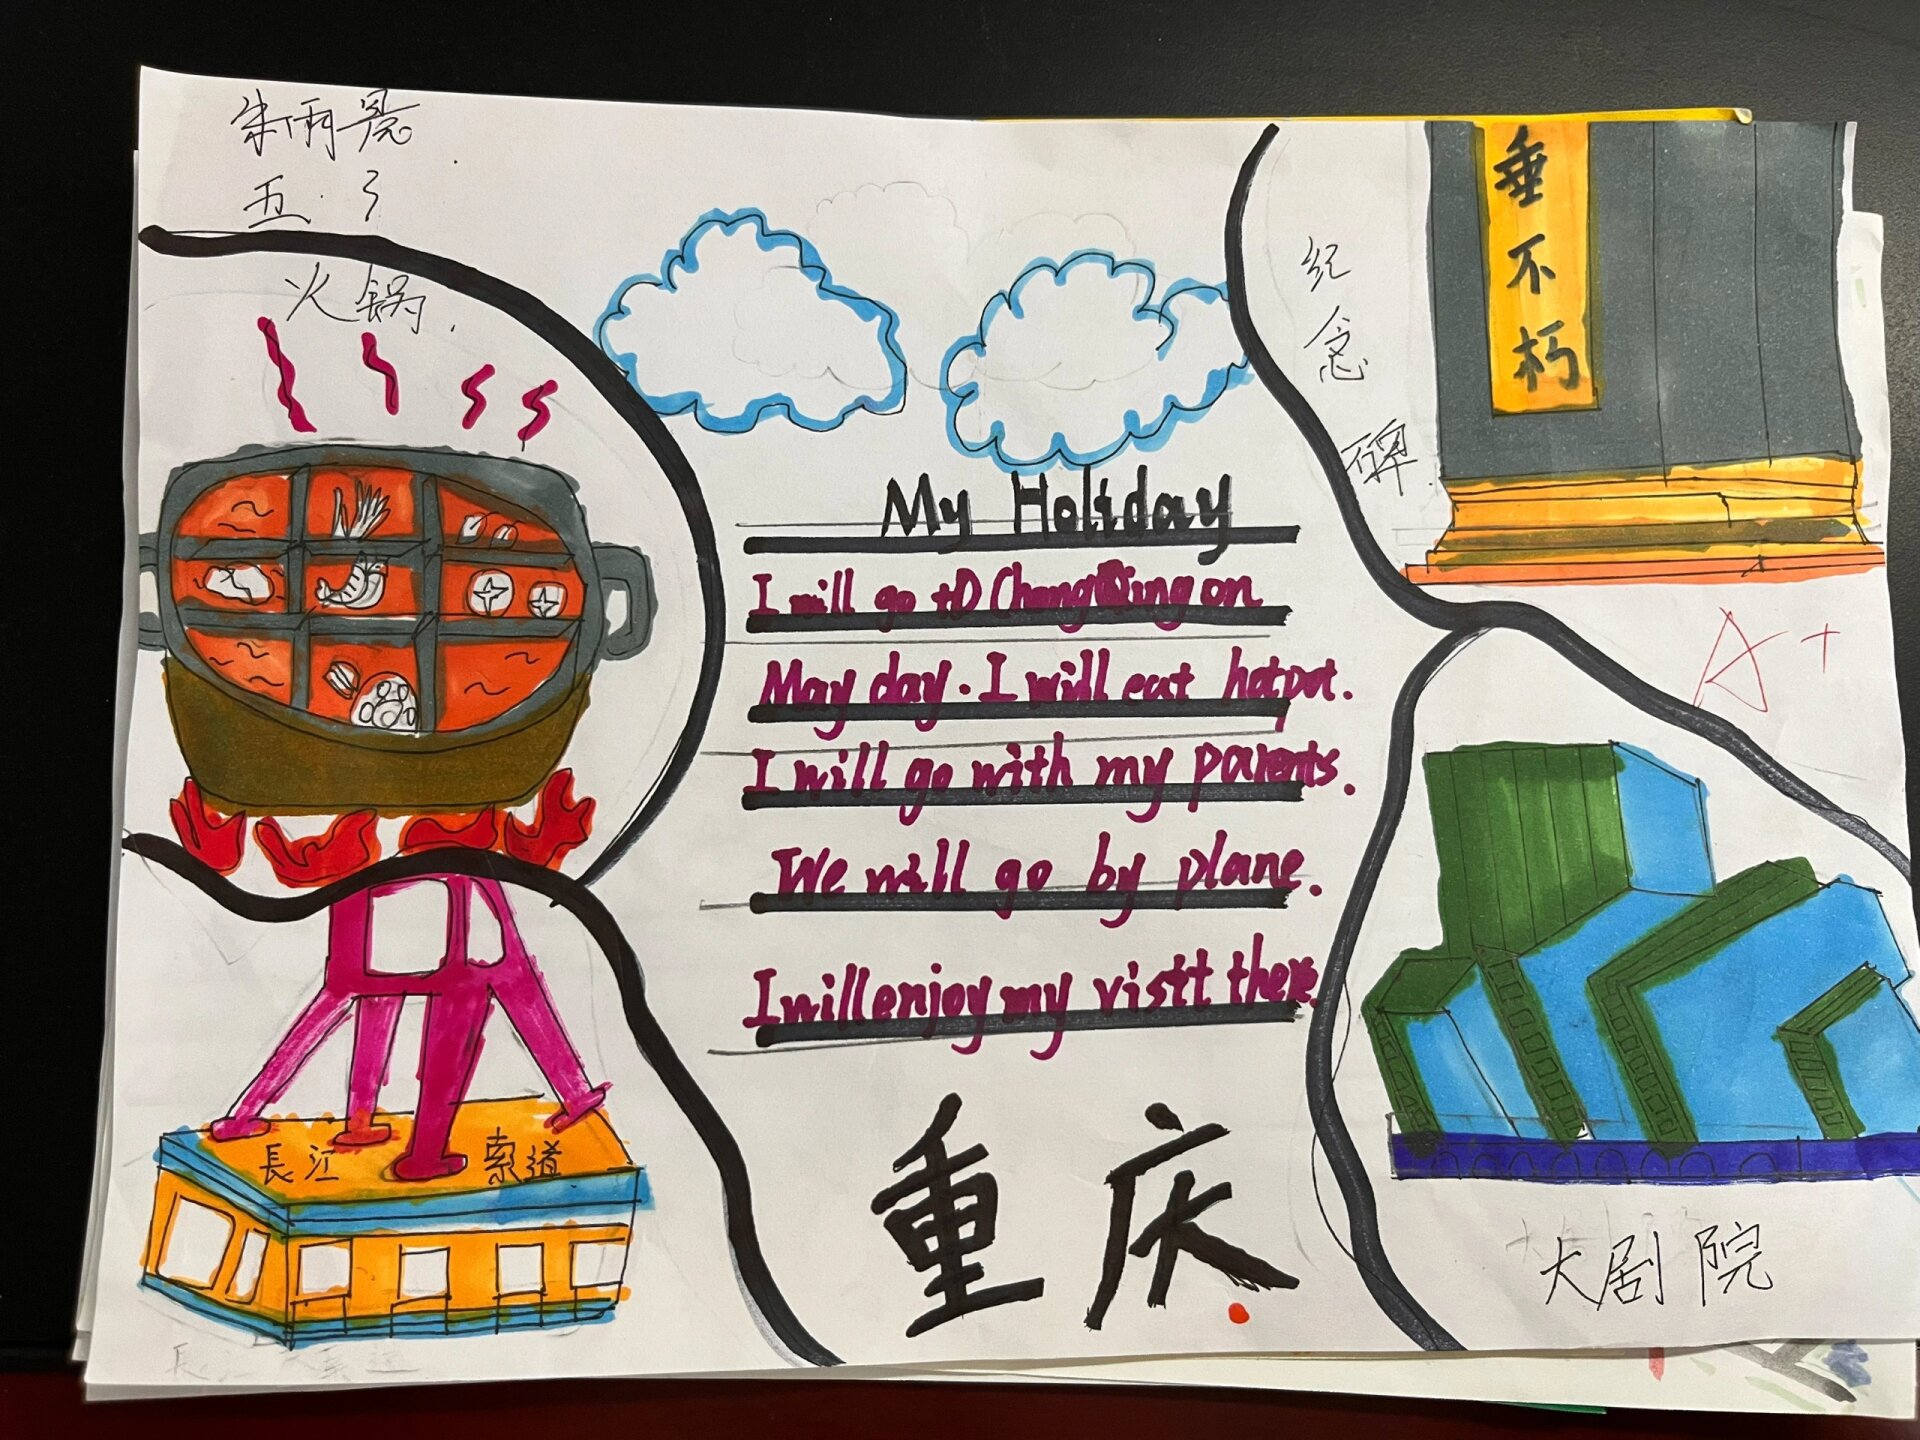 朱雨晨
五.3
火锅.
纪念碑
垂不朽
My Holiday
I will go to ChongQing on
May day. I will eat hotpot.
I will go with my parents.
We will go by plane.
I will enjoy my visit there.
A+
長江 索道
重庆
大剧院